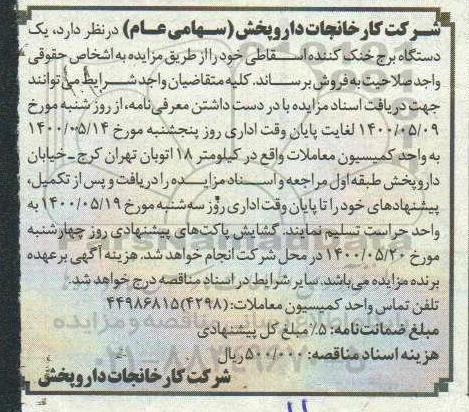 شرکت کارخانجات داروپخش (سهامی عام) درنظر دارد، یک
دستگاه برج خنک کننده اسقاطی خود را از طریق مزایده به اشخاص حقوقی
واجد صلاحیت به فروش برساند. کلیه متقاضیان واجد شرایط می توانند
جهت دریافت اسناد مزایده با در دست داشتن معرفی نامه، از روز شنبه مورخ
۱۴۰۰/۰۵/۰۹ لغایت پایان وقت اداری روز پنجشنبه مورخ ۱۴۰۰/۰۵/۱۴
به واحد کمیسیون معاملات واقع در کیلومتر ۱۸ اتوبان تهران کرج-خیابان
داروپخش طبقه اول مراجعه و اسناد مزایده را دریافت و پس از تکمیل،
پیشنهادهای خود را تا پایان وقت اداری روز سه شنبه مورخ ۱۴۰۰/۰۵/۱۹ به
واحد حراست تسلیم نمایند. گشایش پاکت های پیشنهادی روز چهارشنبه
مورخ ۱۴۰۰/۰۵/۲۰ در محل شرکت انجام خواهد شد. هزینه آگهی بر عهده
برنده مزایده می باشد. سایر شرایط در اسناد مناقصه درج خواهد شد.
تلفن تماس واحد کمیسیون معاملات: (۴۲۹۸) ۴۴۹۸۶۸۱۵
مبلغ ضمانت نامه: ۵٪ مبلغ کل پیشنهادی
هزینه اسناد مناقصه: ۵۰۰/۰۰۰ ریال
شرکت کارخانجات داروپخش